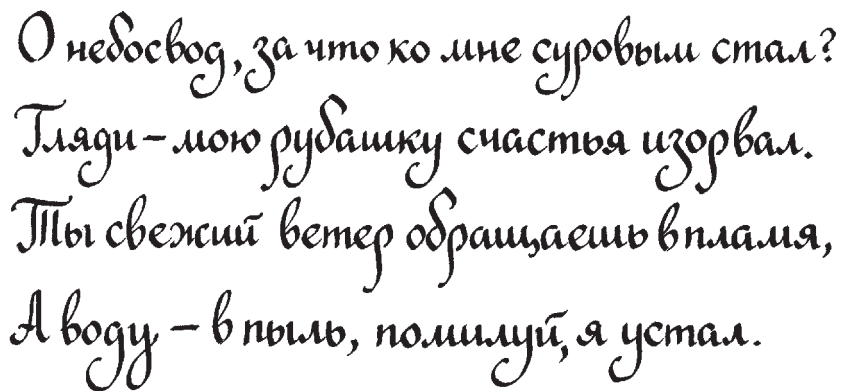 О небосвод, за что ко мне суровым стал?
Гляди – мою рубашку счастья изорвал.
Ты свежий ветер обращаешь в пламя,
А воду – в пыль, помилуй, я устал.